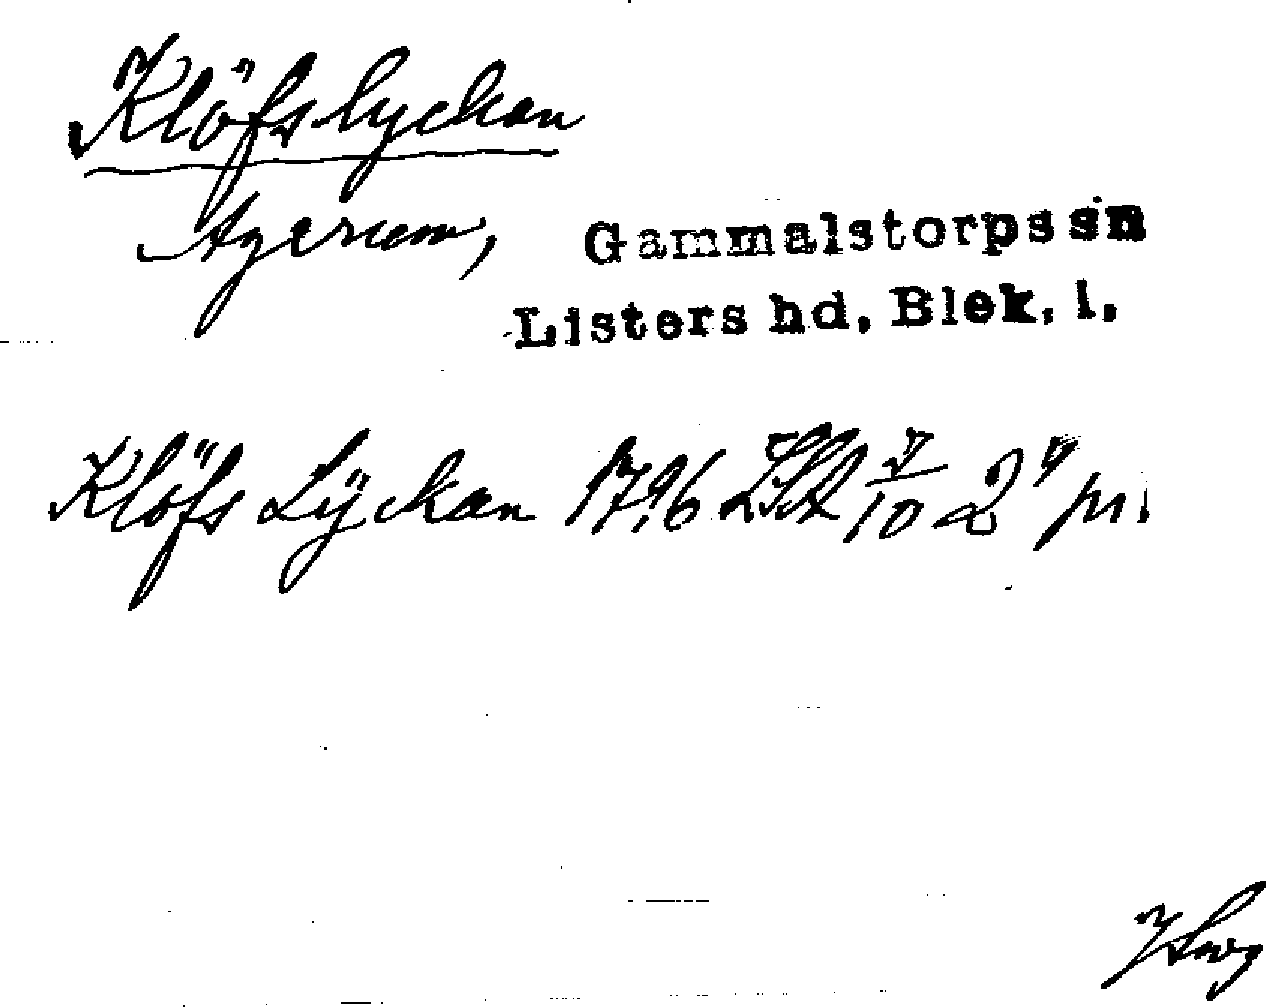 Klöfslyckan
Agerum, Gammalstorps sn
Listers hd, Blek. l.
Klöfs Lÿckan 1796 7/10 2